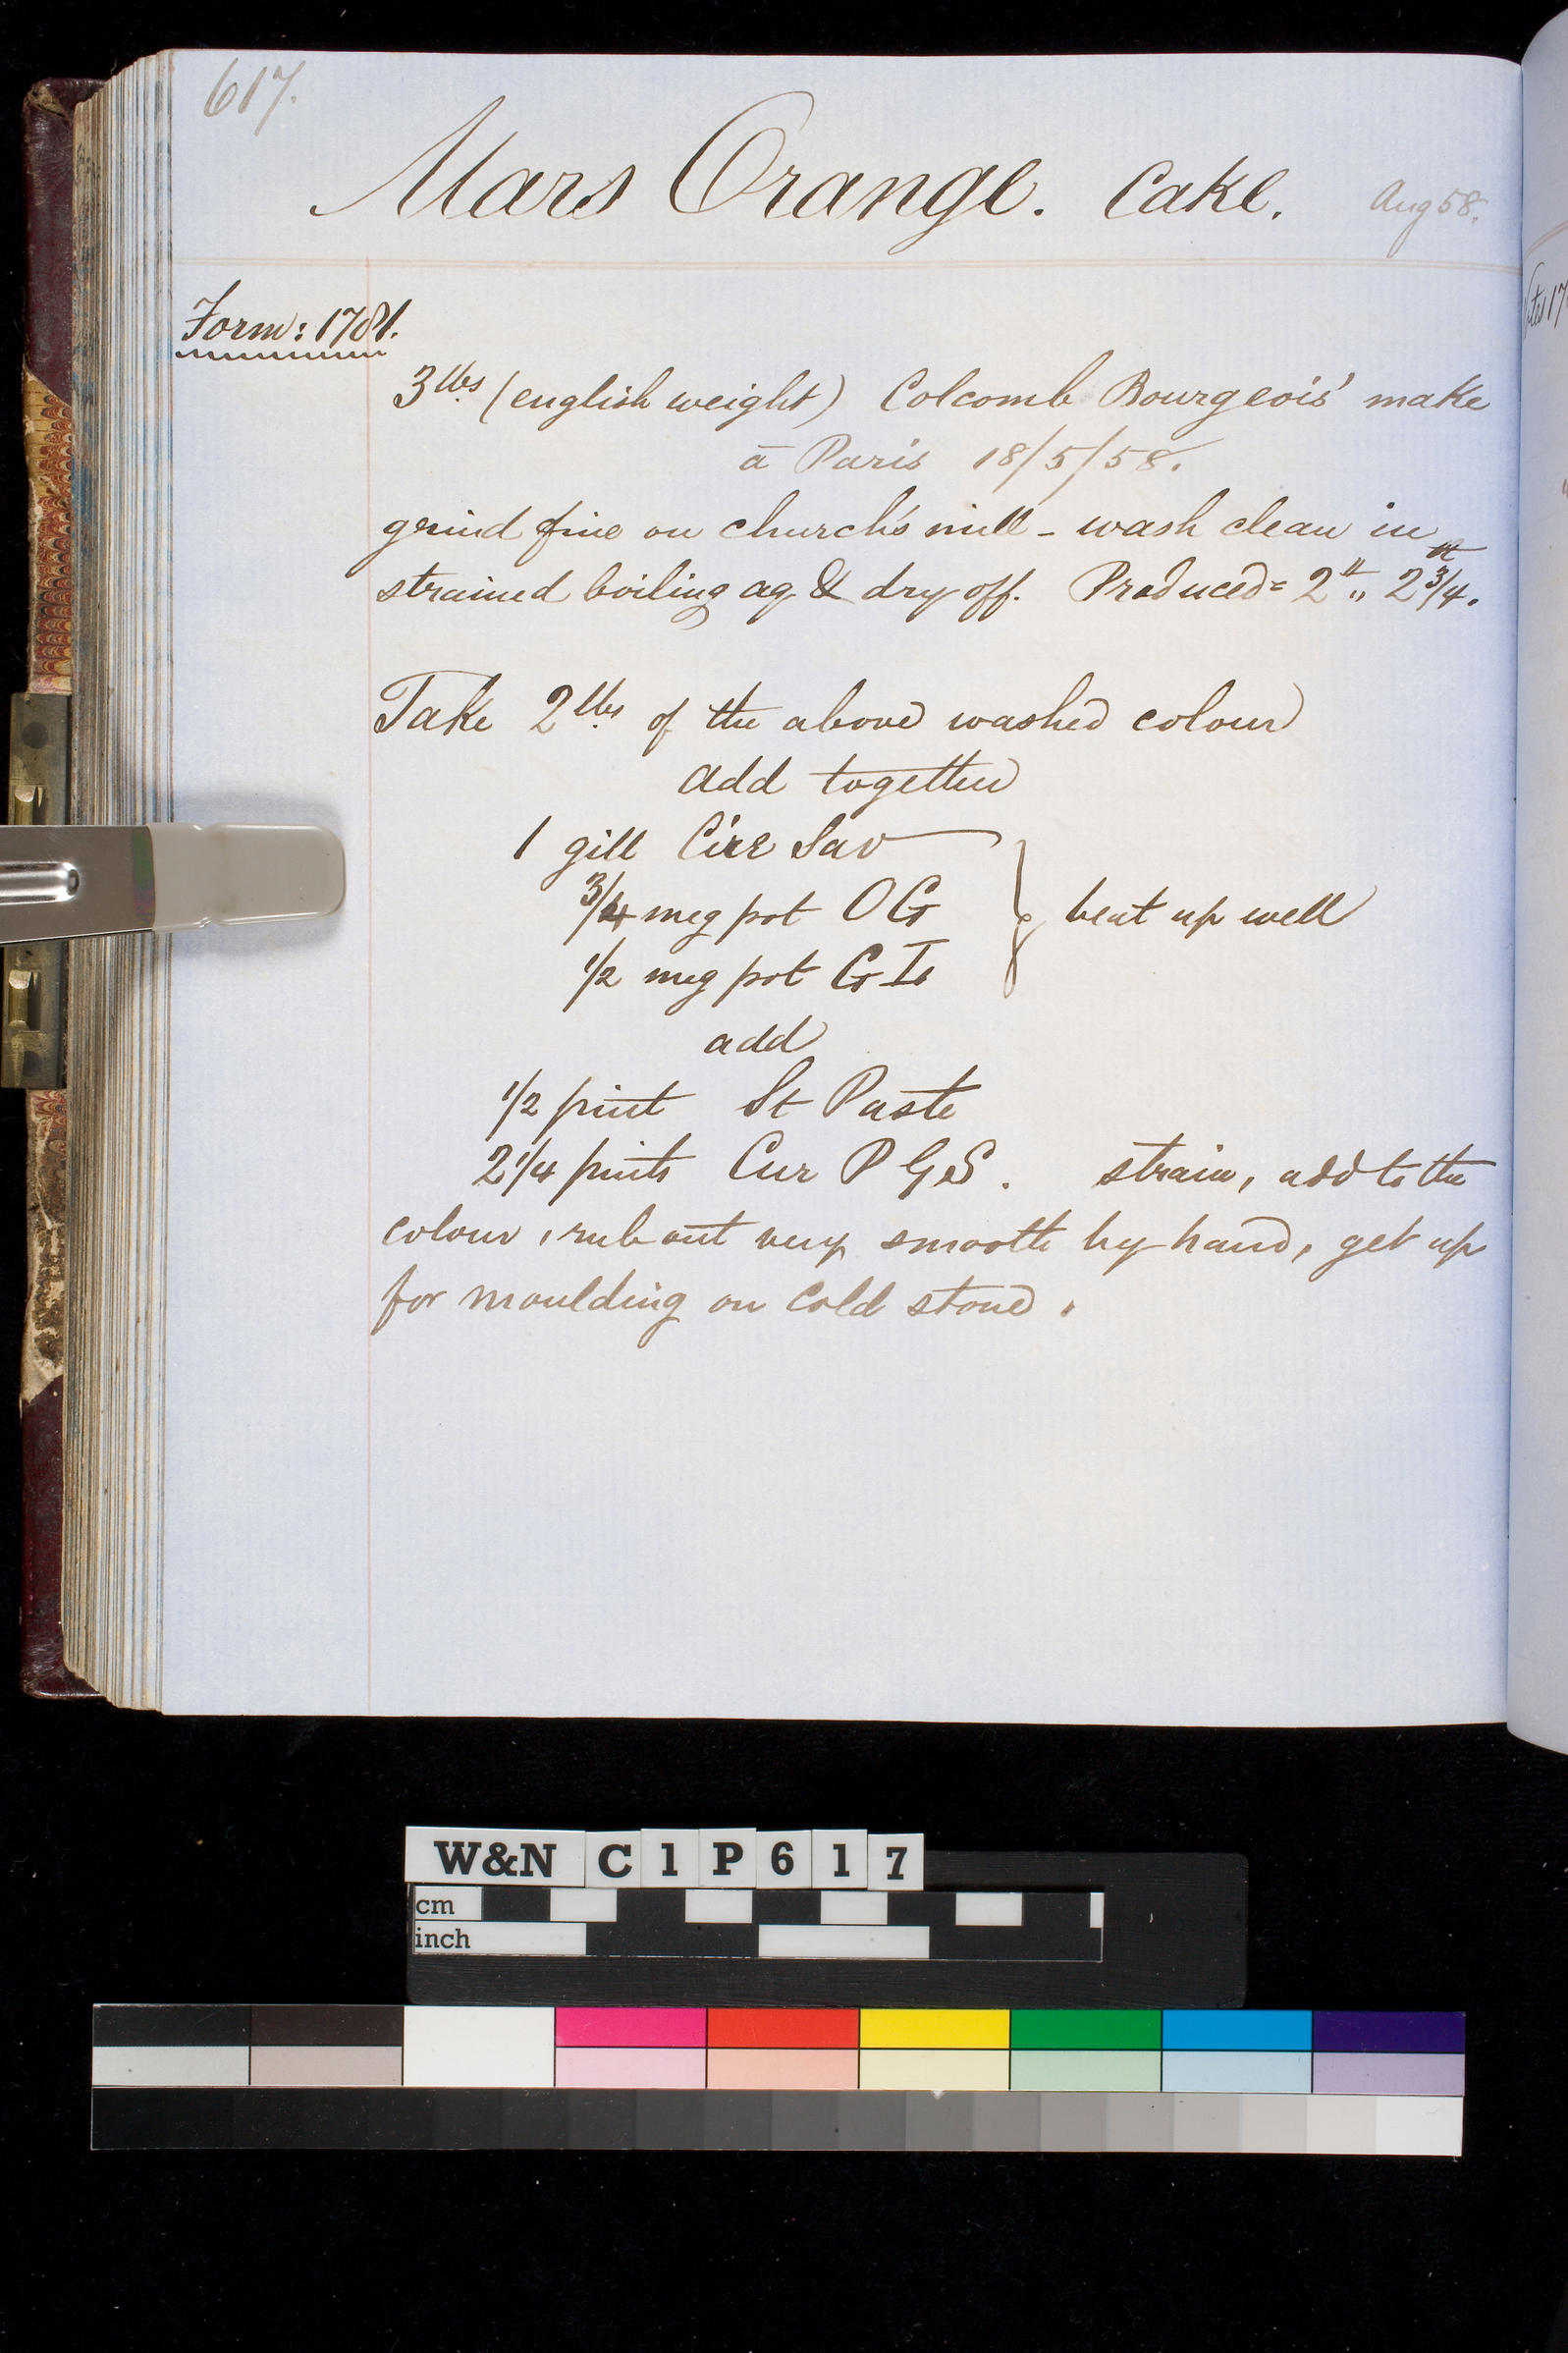 617.
Mars Orange. Cake. Aug 58.
Form: 1781.
3 lbs (english weight) Colcomb Bourgeois' make
à Paris 18/5/58.
grind fine on church's mill - wash clean in
strained boiling aq & dry off. Produced = 2 lb ,, 2 3/4.
Take 2 lbs of the above washed colour
add together
1 gill Cire Sav
3/4 meg pot O G } beat up well
1/2 meg pot G Is
add
1/2 pint St Paste
2 1/4 pints Cur P G S. strain, add to the
colour, rub out very smooth by hand, get up
for moulding on cold stone.
W&N C1P617
cm
inch